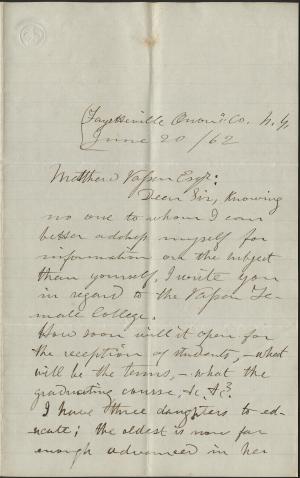 Fayetteville Onon. Co. N. Y.
June 20 /62
Matthew Vassar Esqr:
Dear Sir, Knowing
no one to whom I can
better address myself for
information on the subject
than yourself, I write you
in regard to the Vassar Fe-
male College.
How soon will it open for
the reception of students, - what
will be the terms, - what the
graduating course, &c. &c.
I have three daughters to ed-
ucate; the oldest is now far
enough advanced in her